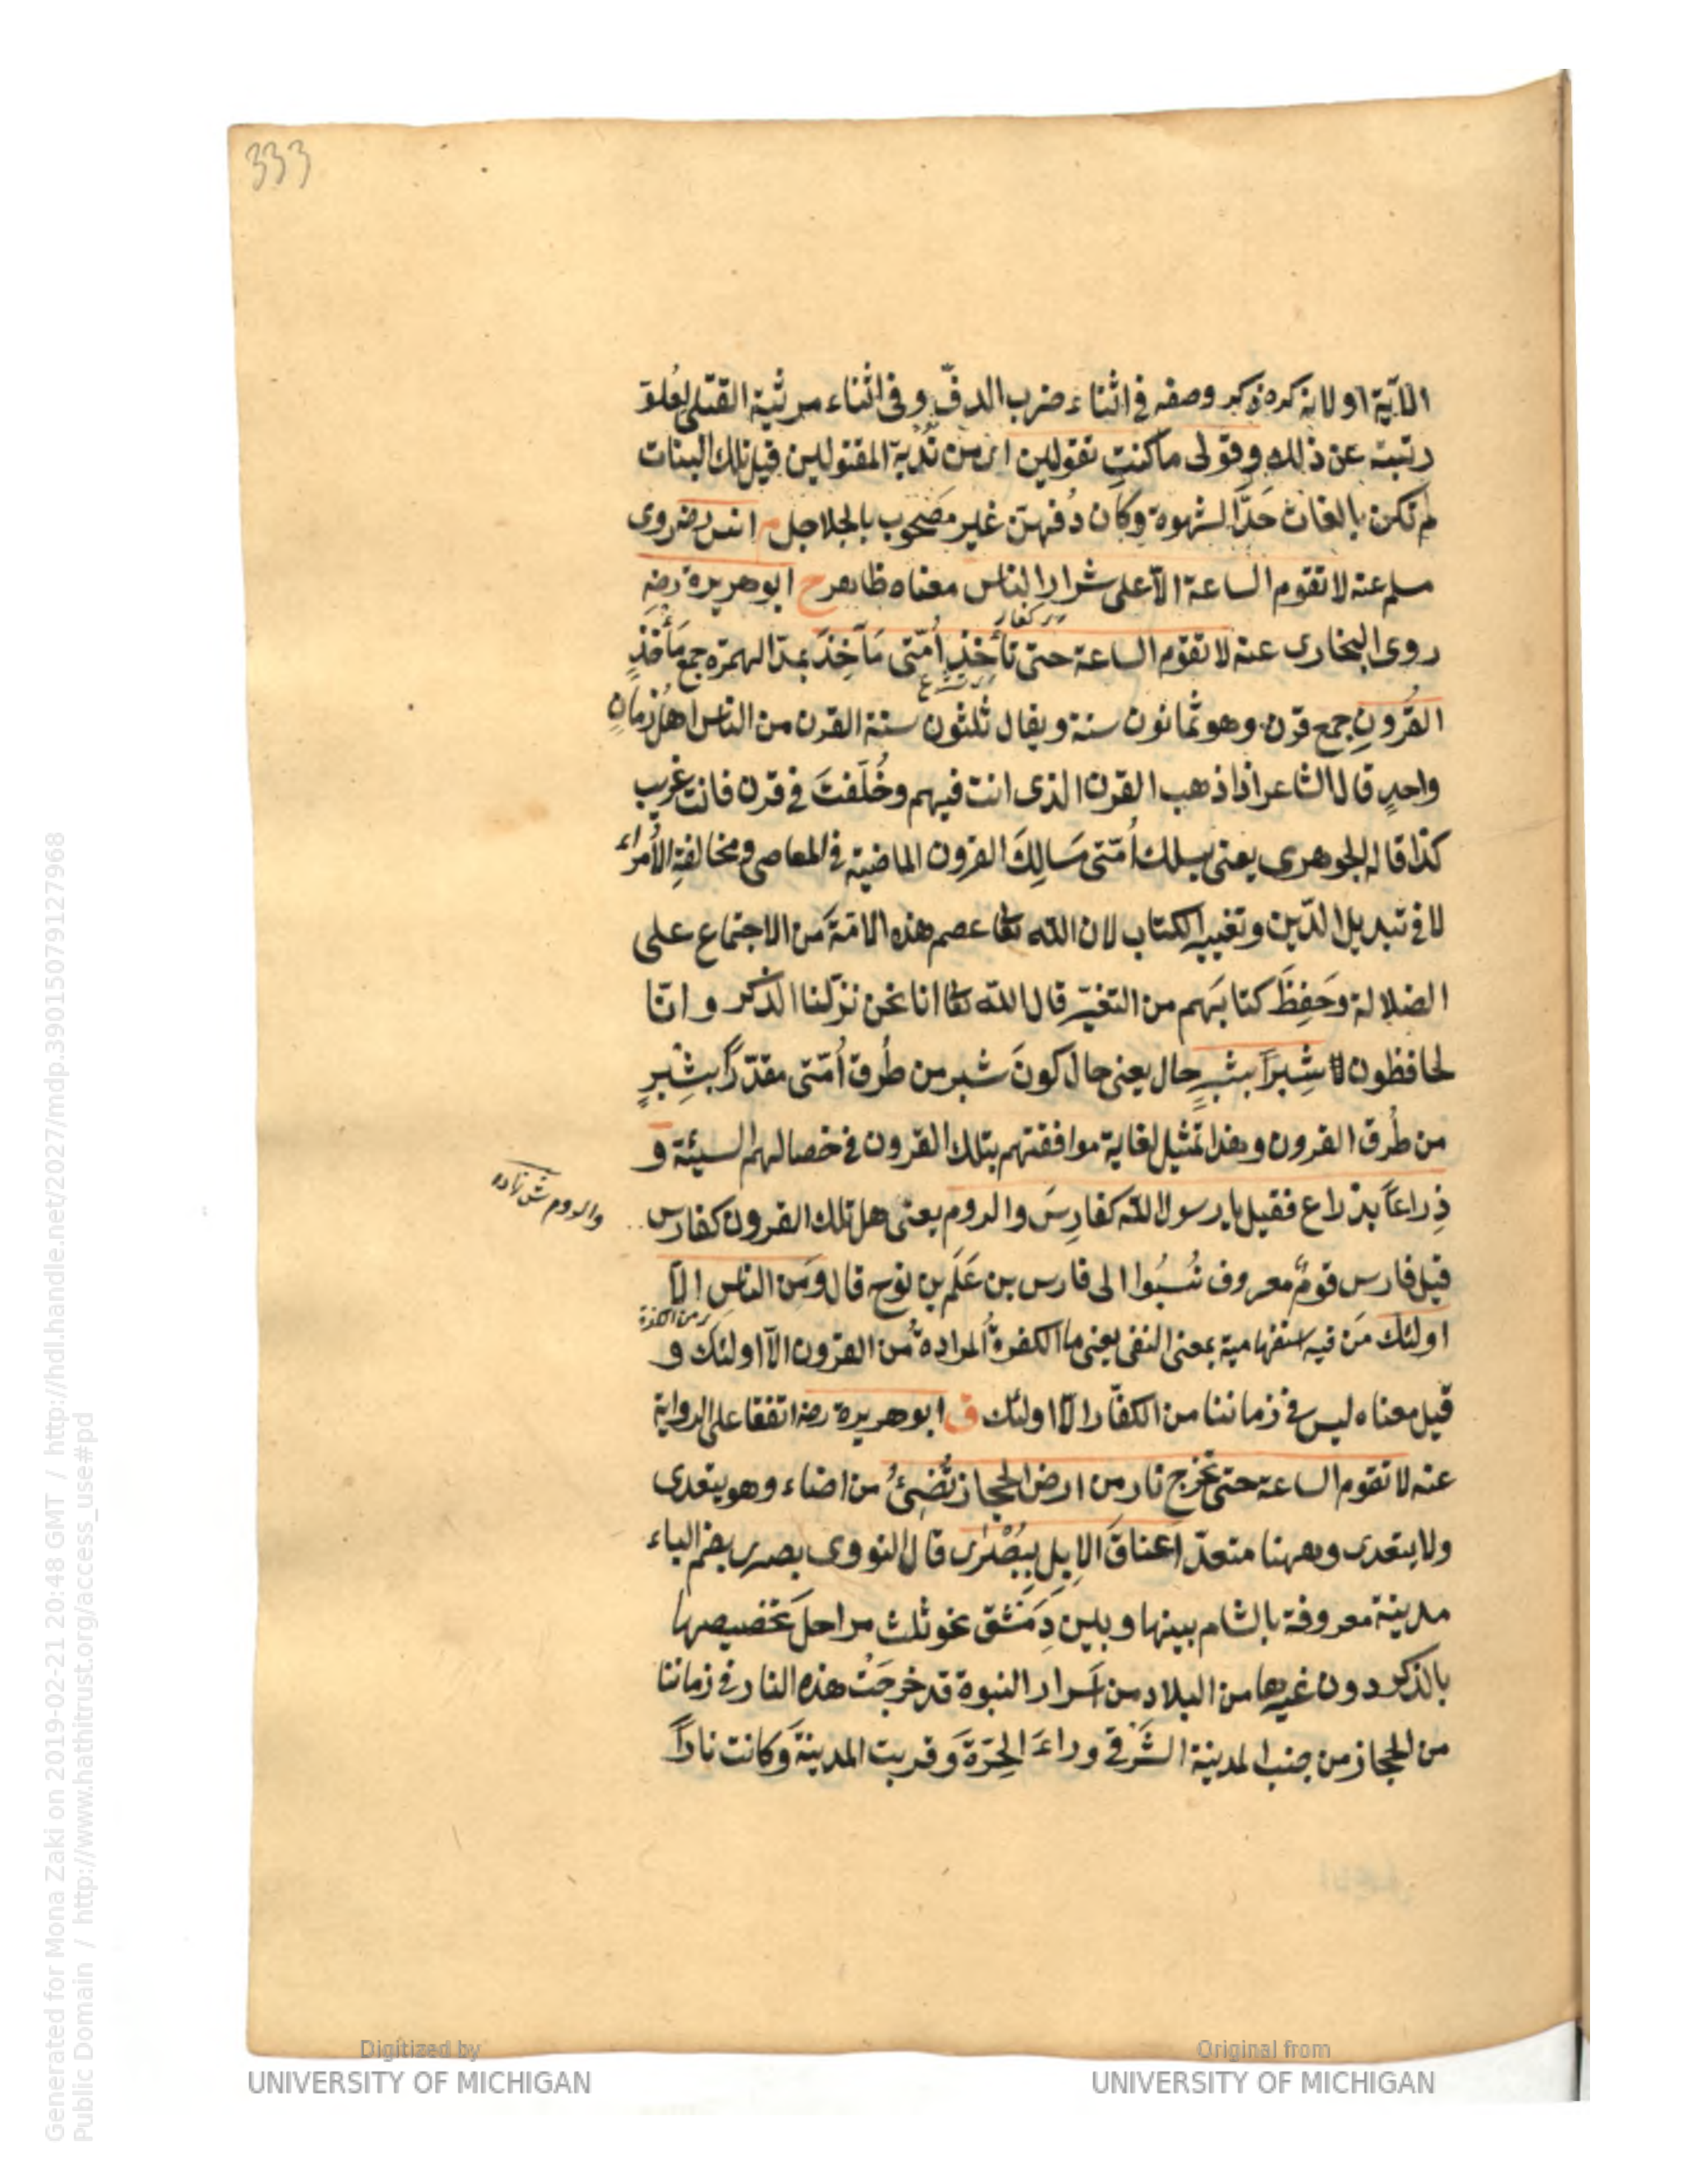 333
الآية او لانه كره ذكر وصفه فى اثناء ضرب الدفّ وفى اثناء مرثية القتلى لعُلوّ
رتبته عن ذلك وقولى ما كنتِ تقولين اى من نُدبة المقتولين قيل تلك البنات
لم تكن بالغات حَدَّ الشهوة وكان دُفهنّ غير مصحوب بالجلاجل م انس رضه روى
مسلم عنه لا تقوم الساعة الّا على شرار الناس معناه ظاهر خ ابو هريرة رضه
روى البخارى عنه لا تقوم الساعة حتى تأخذ اُمّتى مَآخِذَ بمدّ الهمزة جمع مَأخَذٍ
القُرونِ جمع قرن وهو ثمانون سنة ويقال ثلثون سنة القرن من الناس اهل زمانٍ
واحدٍ قال الشاعر اذا ذهب القرن الذى انت فيهم وخُلّفتَ فى قرن فانت غريب
كذا قاله الجوهرى يعنى يسلك اُمّتى مَسالِكَ القرون الماضية فى المعاصى ومخالفةِ الأمراء
لا فى تبديل الدّين وتغيير الكتاب لان الله تعا عصم هذه الامّة من الاجتماع على
الضلالة وحَفِظَ كتابَهم من التغيّر قال الله تعا انا نحن نزّلنا الذكر وانّا
له لحافظون شِبرًا بشبرٍ حال يعنى حال كونَ شبر من طُرق اُمّتى مقدّرًا بشِبرٍ
من طُرق القرون وهذا تمثيل لغاية موافقتهم بتلك القرون فى خصالهم السيئة و
ذِراعًا بذراع فقيل يا رسول الله كفارِسَ والروم يعنى هل تلك القرون كفارس
والروم
قيل فارس قومٌ معروف نُسِبُوا الى فارس بن عَلَم بن نوح قال ومَن الناس الّا
اولئك مَن فيه استفهامية بمعنى النفى يعنى ما الكفرةُ المرادةُ من القرون الّا اولئك و
قيل معناه ليس فى زماننا من الكفّار الّا اولئك ق ابو هريرة رضه اتفقا على الرواية
عنه لا تقوم الساعة حتى تخرج نار من ارض الحجاز تُضىءُ من اضاء وهو يتعدى
ولا يتعدى وههنا متعدّ اعناقَ الابل ببُصْرى قال النووى بصرى بضم الباء
مدينة معروفة بالشام بينها وبين دِمَشق نحو ثلث مراحل تخصيصها
بالذكر دون غيرها من البلاد من اسرار النبوة قد خرجَتْ هذه النار فى زماننا
من الحجاز من جنب المدينة الشّرقى وراءَ الحرّة وقربت المدينة وكانت نارًا
Digitized by
UNIVERSITY OF MICHIGAN
Original from
UNIVERSITY OF MICHIGAN
Generated for Mona Zaki on 2019-02-21 20:48 GMT / http://hdl.handle.net/2027/mdp.39015079127968
Public Domain / http://www.hathitrust.org/access_use#pd